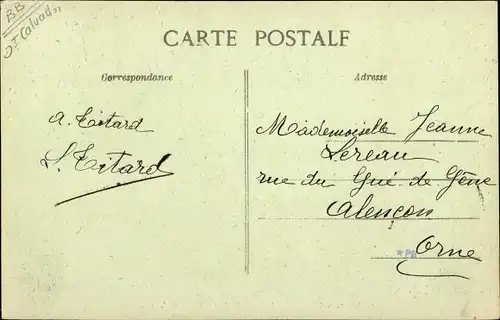 BB
Dt Calvados
CARTE POSTALE
Correspondance
Adresse
A. Titard
S. Titard
Mademoiselle Jeanne
Lereau
rue du Gué de Gêne
Alençon
Orne
*PB